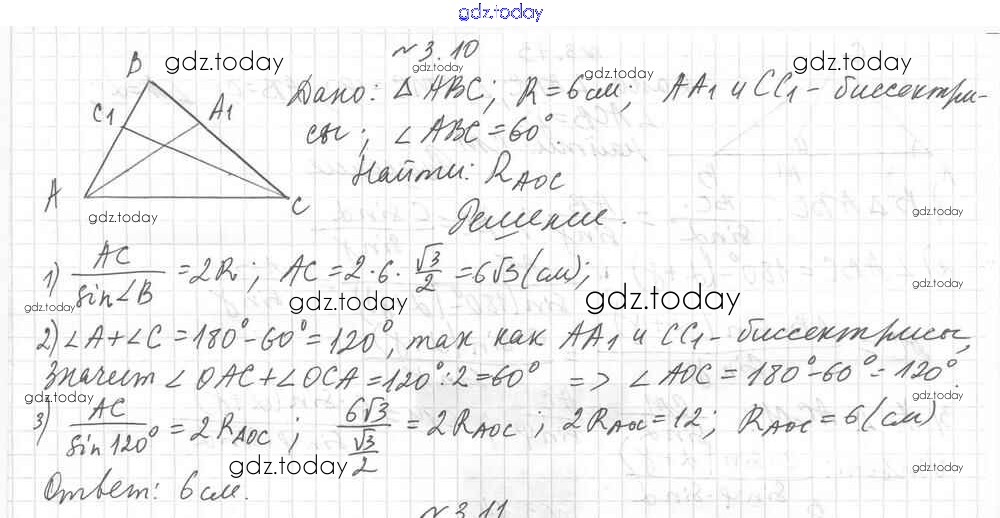 gdz.today
№3.10
B
gdz.today
C1
A1
A
C
gdz.today
Дано: △ABC; R=6см; AA1 и CC1 - биссектри-
сы; ∠ABC=60°
Найти: R_AOC
Решение.
gdz.today
1) AC/sin∠B = 2R; AC = 2·6·√3/2 = 6√3 (см);
gdz.today gdz.today gdz.today
2) ∠A+∠C=180°-60°=120°, так как AA1 и CC1 - биссектрисы,
значит ∠OAC+∠OCA=120°:2=60° => ∠AOC=180°-60°=120°.
gdz.today gdz.today
3) AC/sin120° = 2R_AOC; 6√3/(√3/2) = 2R_AOC; 2R_AOC=12; R_AOC=6(см)
gdz.today gdz.today
Ответ: 6см.
№3.11